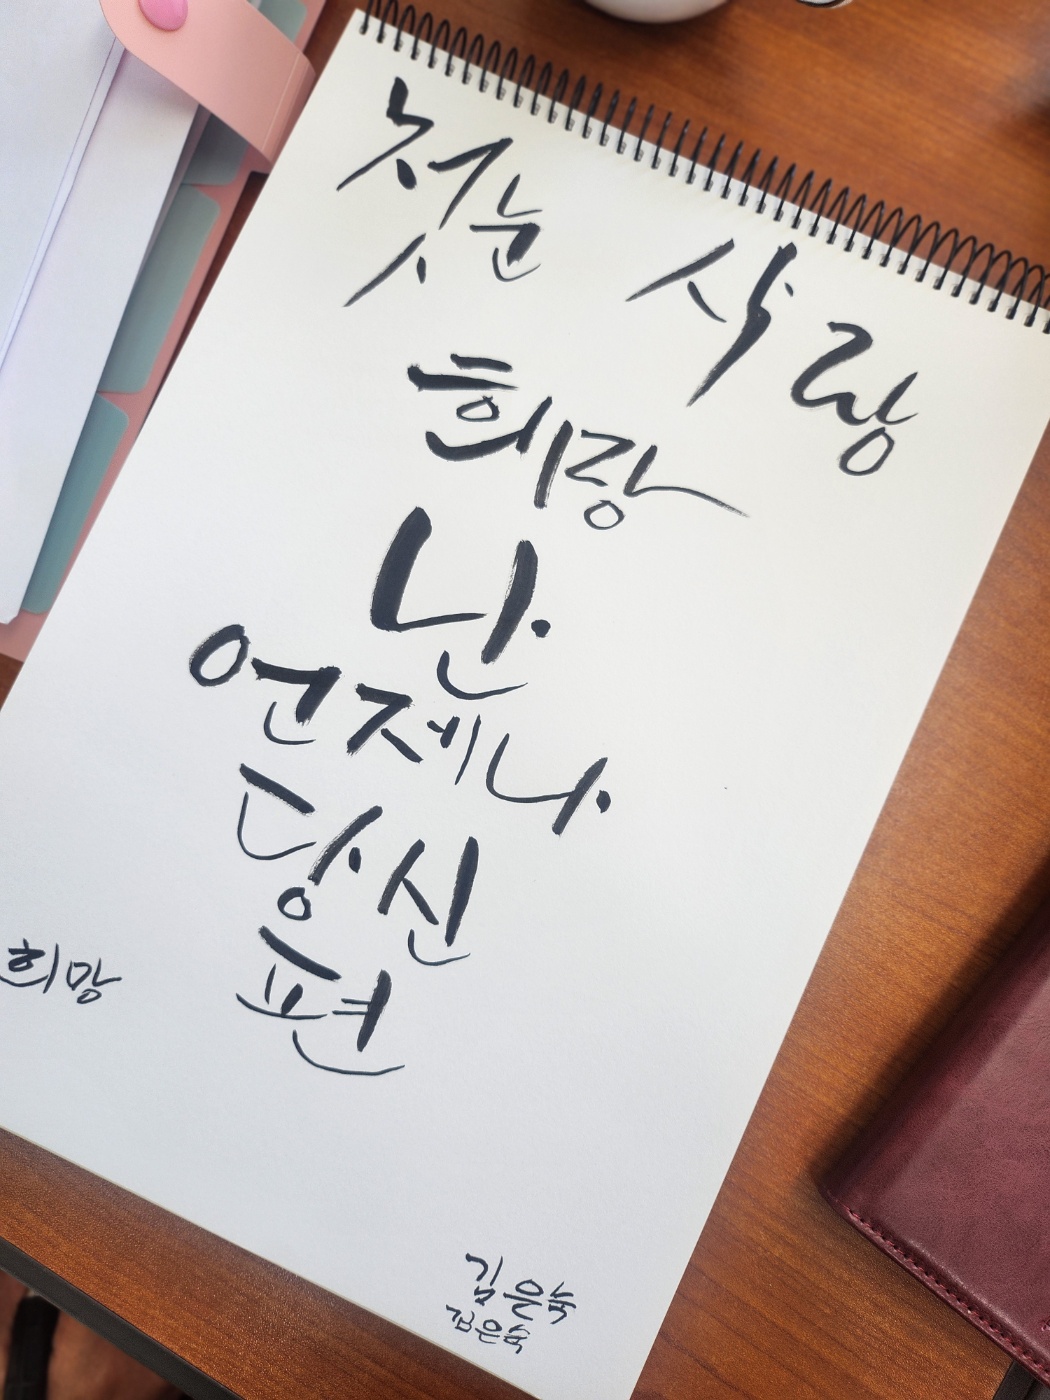 첫눈 사랑
희랑
난
언제나
당신
편
희망
김은숙
김은숙